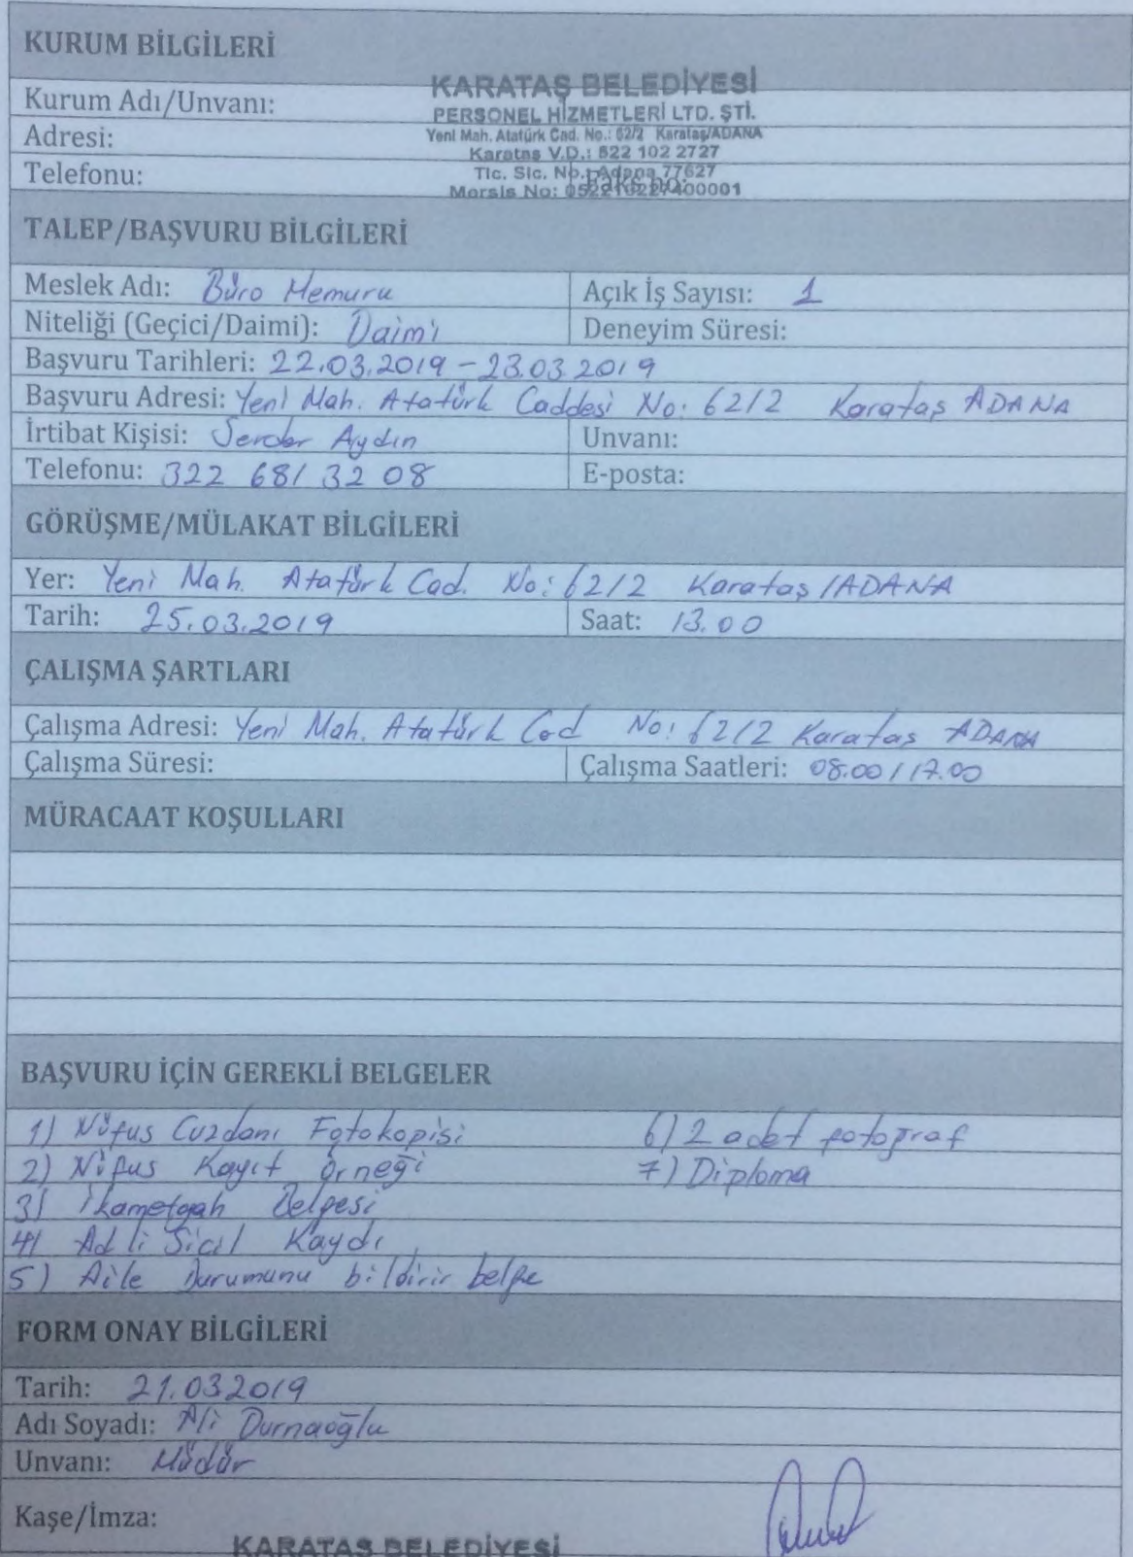 KURUM BİLGİLERİ
KARATAŞ BELEDİYESİ
Kurum Adı/Unvanı: PERSONEL HİZMETLERİ LTD. ŞTİ.
Adresi: Yeni Mah. Atatürk Cad. No.: 62/2 Karataş/ADANA
Karataş V.D.: 522 102 2727
Telefonu: Tic. Sic. No.: Adana 77627
Mersis No:
TALEP/BAŞVURU BİLGİLERİ
Meslek Adı: Büro Memuru Açık İş Sayısı: 1
Niteliği (Geçici/Daimi): Daimi Deneyim Süresi:
Başvuru Tarihleri: 22.03.2019 - 23.03.2019
Başvuru Adresi: Yeni Mah. Atatürk Caddesi No: 62/2 Karataş ADANA
İrtibat Kişisi: Serdar Aydın Unvanı:
Telefonu: 322 681 32 08 E-posta:
GÖRÜŞME/MÜLAKAT BİLGİLERİ
Yer: Yeni Mah. Atatürk Cad. No: 62/2 Karataş /ADANA
Tarih: 25.03.2019 Saat: 13.00
ÇALIŞMA ŞARTLARI
Çalışma Adresi: Yeni Mah. Atatürk Cad No: 62/2 Karataş ADANA
Çalışma Süresi: Çalışma Saatleri: 08.00 / 17.00
MÜRACAAT KOŞULLARI
BAŞVURU İÇİN GEREKLİ BELGELER
1) Nüfus Cuzdanı Fotokopisi 6) 2 adet fotoğraf
2) Nüfus Kayıt örneği 7) Diploma
3) İkametgah Belgesi
4) Adli Sicil Kaydı
5) Aile Durumunu bildirir belge
FORM ONAY BİLGİLERİ
Tarih: 21.03.2019
Adı Soyadı: Ali Durnaoğlu
Unvanı: Müdür
Kaşe/İmza:
KARATAŞ BELEDİYESİ